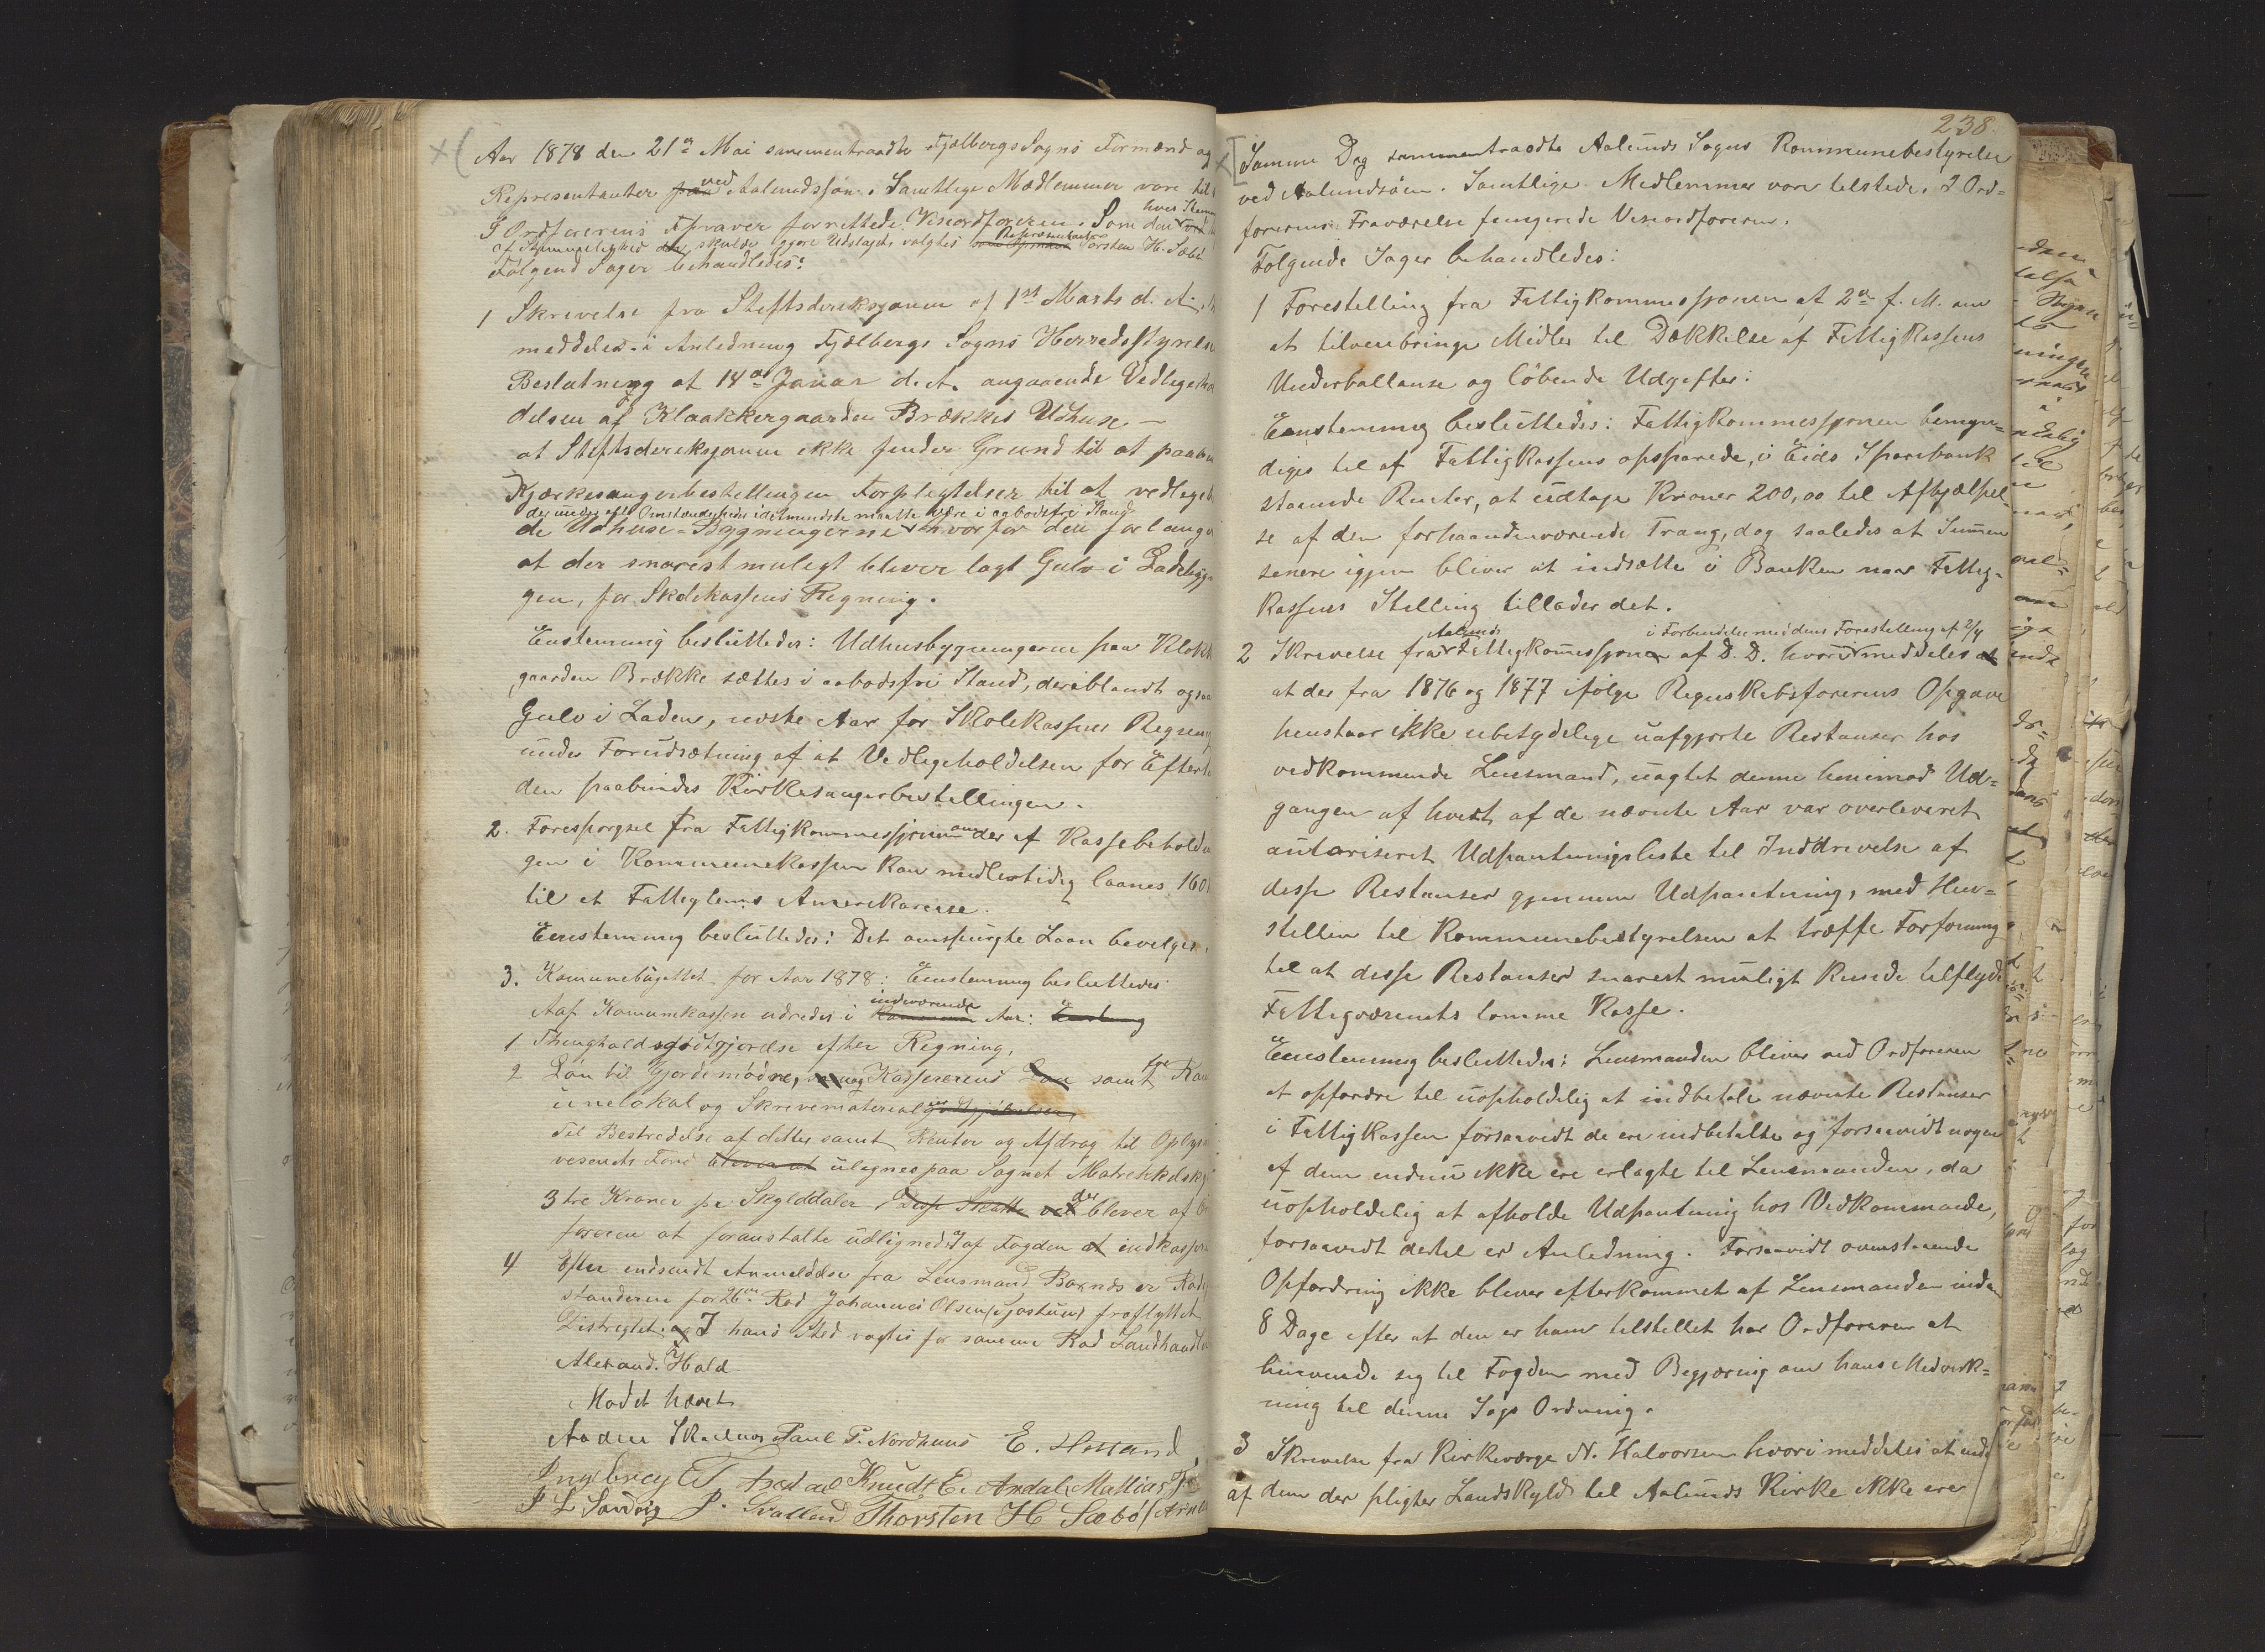 Aar 1878 den 21de Mai sammentraadte Fjælbergs Sogns Formænd og
Representanter paa ved Aalundssøen. Samtlige Medlemmer vare
I Ordførerens Fravær forrettede Viceordføreren. Som den hvis
af Stemmelighed skulde gjøre Udslaget, valgtes Representant Torsten H. Sæbø
Følgend Sager behandledes:
1 Skrivelse fra Stiftsdireksjonen af 1st Marts d. A.
meddeles i Anledning Fjælbergs Sogns Herredsstyrelse
Beslutning af 14de Januar d. A. angaaende Vedligehol
delsen af Klaakkergaarden Brækkes Udhuse –
at Stiftsdireksjonen ikke finder Grund til at paa
Kjærkesangerbestillingen Forpligtelser til at vedlige
der under alle Omstændigheder idetmindste maatte være i aabodsfri Stand
de Udhuse-Bygningerne hvorfor den forlange
at der snarest muligt bliver lagt Gulv i Ladebyg
gen, for Skolekassens Regning.
Eenstemmig besluttedes: Udhusbygningerne paa Klok
gaarden Brække sættes i aabodsfri Stand, deriblandt ogsaa
Gulv i Laden, neste Aar for Skolekassens Regning
under Forudsætning af at Vedligeholdelsen for Efter
den paabindes Kirkesangerbestillingen.
2. Forespørgsel fra Fattigkommissjonen om der af Kassebehold
gen i Kommunekassen kan midlertidig laanes 160
til et Fattiglems Amerikareise.
Eenstemmig besluttedes: Det omspurgte Laan bevilges.
3. Komunebugettet for Aar 1878: Eenstemmig besluttedes
Aaf Komunekassen udredes i indeværende Aar:
1 Thingholdsgodtgjørelse efter Regning,
2 Løn til Gjordemødre, Kassererens Løn samt Kom
unelokal og Skrivematerial
Til Bestridelse af dette samt Renter og Afdrag til Oplys
vesenets Fond bliver at ulignes paa Sognet Matrikkelsky
3 tre Kroner pr Skylddaler Disse Skatte der bliver af
føreren at foranstalte udlignede af Fogden at indkasser
4 Efter indsendt Anmeldelse fra Lensmand er
standeren for 26de Rod Johannes Olsen fraflyttet
Distrigtet. og I hans Sted vagtes for samme Rod Landhandler
Alexand. Hald
Mødet hævet
Paul P. Nordhuus E.
Knudt E. Ardal Mathias
J L Sandvig P. Svalland Thorsten H Sæbø
238.
Samme Dag sammentraadte Aalunds Sogns Kommunebestyrelse
ved Aalundsøen. Samtlige Medlemmer vare tilstede. I Ord=
førerens Fraværelse fungerede Viseordføreren.
Følgende Sager behandledes:
1 Forestelling fra Fattigkommissjonen af 2de f. M. om
at tilveiebringe Midler til Dækkelse af Fattigkassens
Underballanse og løbende Udgifter:
Eenstemmig besluttedes: Fattigkommissjonen bemyn=
diges til af Fattigkassens opsparede, i Eids Sparebank
staaende Renter, at udtage Kroner 200,00 til Afhjælpel
se af den forhaandenværende Trang, dog saaledes at Summen
senere igjen bliver at indsætte i Banken naar Fattig=
kassens Stelling tillader det.
2 Skrivelse fra Aalunds Fattigkommissjonen af D. D. hvori i Forbindelse med dens Forestelling af 2/4 meddeles
at der fra 1876 og 1877 ifølge Regnskabsførerens Opgave
henstaar ikke ubetydelige uafgjorte Restanser hos
vedkommende Lensmand, uagtet denne henimod Ud=
gangen af hvert af de nævnte Aar var overleveret
autoriseret Udpantningsliste til Inddrivelse af
disse Restanser gjennem Udpantning, med Hen=
stillen til Kommunebestyrelsen at træffe Forføining
til at disse Restanser snarest muligt kunde tilflyde
Fattigvæsenets tomme Kasse.
Eenstemmig besluttedes: Lensmanden bliver ved Ordføreren
at opfordre til uopholdelig at indbetale nævnte Restanser
i Fattigkassen forsaavidt de ere indbetalte og forsaavidt nogen
af dem endnu ikke ere erlagte til Lensmanden, da
uopholdelig at afholde Udpantning hos Vedkommende,
forsaavidt dertil er Anledning. Forsaavidt ovenstaaende
Opfordring ikke bliver efterkommet af Lensmanden inden
8 Dage efter at den er ham tilstillet har Ordføreren at
henvende sig til Fogden med Begjæring om hans Medvirk=
ning til denne Sags Ordning.
3 Skrivelse fra Kirkeværge N. Halvorsen hvori meddeles at
af dem der pligter Landskyld til Aalunds Kirke ikke ere